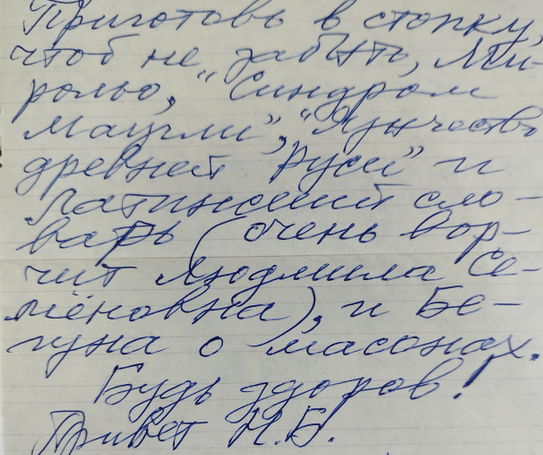 Приготовь в стопку,
чтоб не забыть, Ми-
ролью, "Синдром
Маугли", "Язычество
древней Руси" и
Латинский сло-
варь (очень вор-
чит Людмила Се-
мёновна), и Бе-
гуна о масонах.
Будь здоров!
Привет Н.Б.